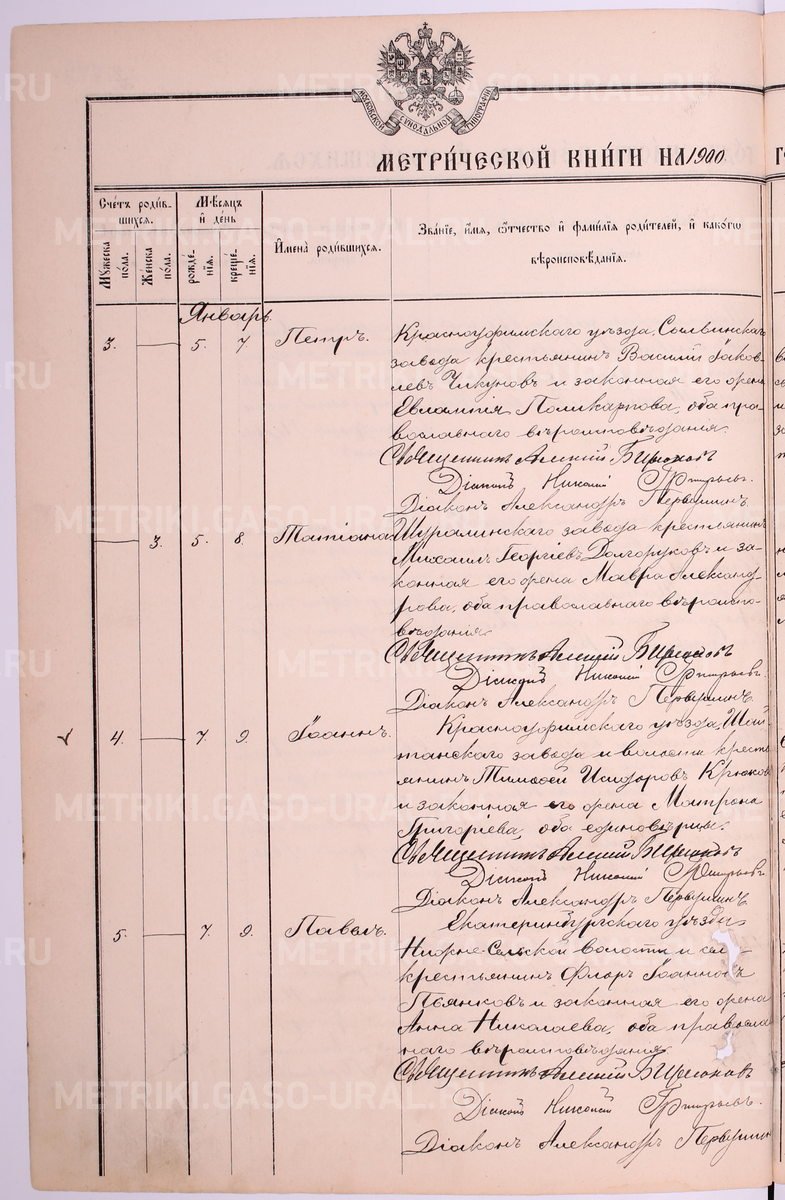 МОСКОВСКОЙ СУНОДАЛЬНОЙ ТИПОГРАФІИ
МЕТРИ́ЧЕСКОЙ КНИ́ГИ НА 1900
Сче́тъ роди́в-
шихся.
Мѣ́сяцъ
и̂ день
Му́жеска
по́ла.
Же́нска
по́ла.
рожде́-
нїѧ.
креще́-
нїѧ.
И҆мена̀ роди́вшихся.
Зва́нїе, и҆́мѧ, ѻ҆́тчество и҆ фами́лїѧ роди́телей, и҆ како́гѡ
вѣроисповѣ́данїѧ.
Январь
3. 5. 7 Петръ.
Красноуфимскаго уѣзда, Сылвинскаго
завода крестьянинъ Василій Іаков-
левъ Чикуновъ и законная его жена
Евлампія Поликарпова, оба пра-
вославнаго вѣроисповѣданія.
Священникъ Алексій
Діаконъ Николай
Діаконъ Александръ Первушинъ
3. 5. 8. Татіана
Шуралинскаго завода крестьянинъ
Михаилъ Георгіевъ Долгоруковъ и за-
конная его жена Мавра Александ-
рова, оба православнаго вѣроиспо-
вѣданія.
Священникъ Алексій
Діаконъ Николай
Діаконъ Александръ Первушинъ
4. 7. 9. Іоаннъ.
Красноуфимскаго уѣзда, Шай-
танскаго завода и волости кресть-
янинъ Тимоѳей Исидоровъ Крюковъ
и законная его жена Матрона
Григоріева, оба единовѣрцы.
Священникъ Алексій
Діаконъ Николай
Діаконъ Александръ Первушинъ
5. 7. 9. Павелъ.
Екатеринбургскаго уѣзда
Нижне-Сельской волости и села
крестьянинъ Флоръ Іоанновъ
Пьянковъ и законная его жена
Анна Николаева, оба православ-
наго вѣроисповѣданія.
Священникъ Алексій
Діаконъ Николай
Діаконъ Александръ Первушинъ
METRIKI.GASO-URAL.RU